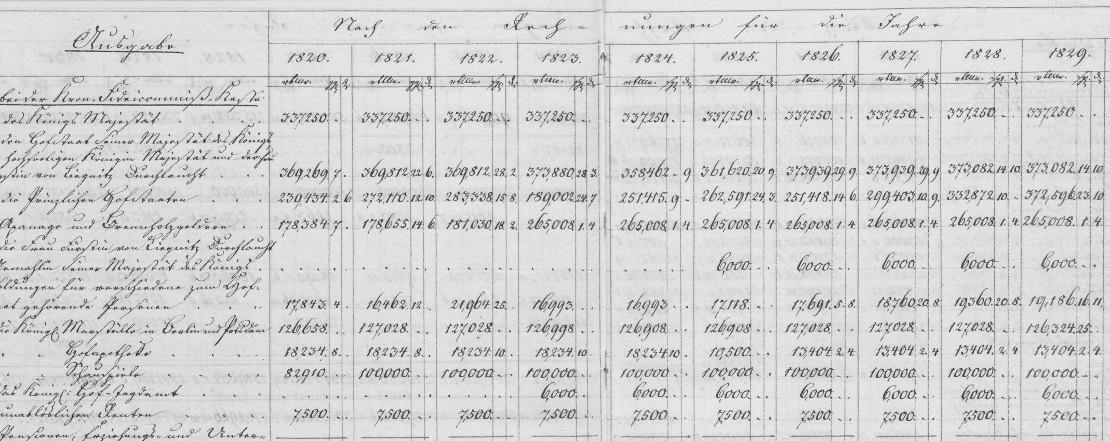 Nach den Rech- nungen für die Jahre
Ausgabe
1820. 1821. 1822. 1823. 1824. 1825. 1826. 1827. 1828. 1829.
bei der Kron-Fideicommiß-Kasse
des Königs Majestät 337,250. 337,250. 337,250. 337,250. 337,250. 337,250. 337,250. 337,250. 337,250. 337,250.
den Hofstaat Seiner Majestät des Königs
hochseeligen Königin Majestät und der
von Liegnitz Durchlaucht 369,269 7. 369,812 22 6. 369,812 28 2 373,880 28 3. 358,462 - 9 361,620 20 9. 373,939 29 9 373,939 29 9 373,082 14 10 373,082 14 10
die Prinzlichen Hofstaaten 239,434 2 6 272,110 12 10 283,338 15 8 189,002 24 7 251,415 9 - 262,591 24 3. 251,418 14 6 299,403 10 9 332,872 10 - 372,596 23 10
Apanage und Brennholzgeldern 178,384 7. 178,655 14 6. 187,030 18 2 265,008 1 4 265,008 1 4 265,008 1 4 265,008 1 4 265,008 1 4 265,008 1 4 265,008 1 4
die Frau Fürstin von Liegnitz Durchlaucht
Gemahlin Seiner Majestät des Königs 6,000 6,000 6,000 6,000 6,000
für verschiedene zum Hof-
gehörende Personen 17,843 4. 16,462 12. 21,964 25. 16,993. 16,993 17,118. 17,691 5 8 18,760 20 8 19,360 20 8 19,186 16 11
Königl. Marställe in Berlin und Potsdam 126,658. 127,028. 127,028 126,998 126,908 126,908 127,028 127,028 127,028 126,324 25
Hofapotheke 18,234 8. 18,234 8. 18,234 10. 18,234 10. 18,234 10. 19,500. 13,404 2 4 13,404 2 4 13,404 2 4 13,404 2 4
Schauspiele 82,910. 100,000. 100,000. 100,000. 100,000. 100,000. 100,000. 100,000. 100,000. 100,000.
das Königl. Hof-Jagdamt 6,000 6,000 6,000 6,000 6,000 6,000 6,000
unablöslichen Renten 7,500. 7,500. 7,500. 7,500. 7,500 7,500 7,500 7,500 7,500 7,500
Pensionen, Erziehungs- und Unter-